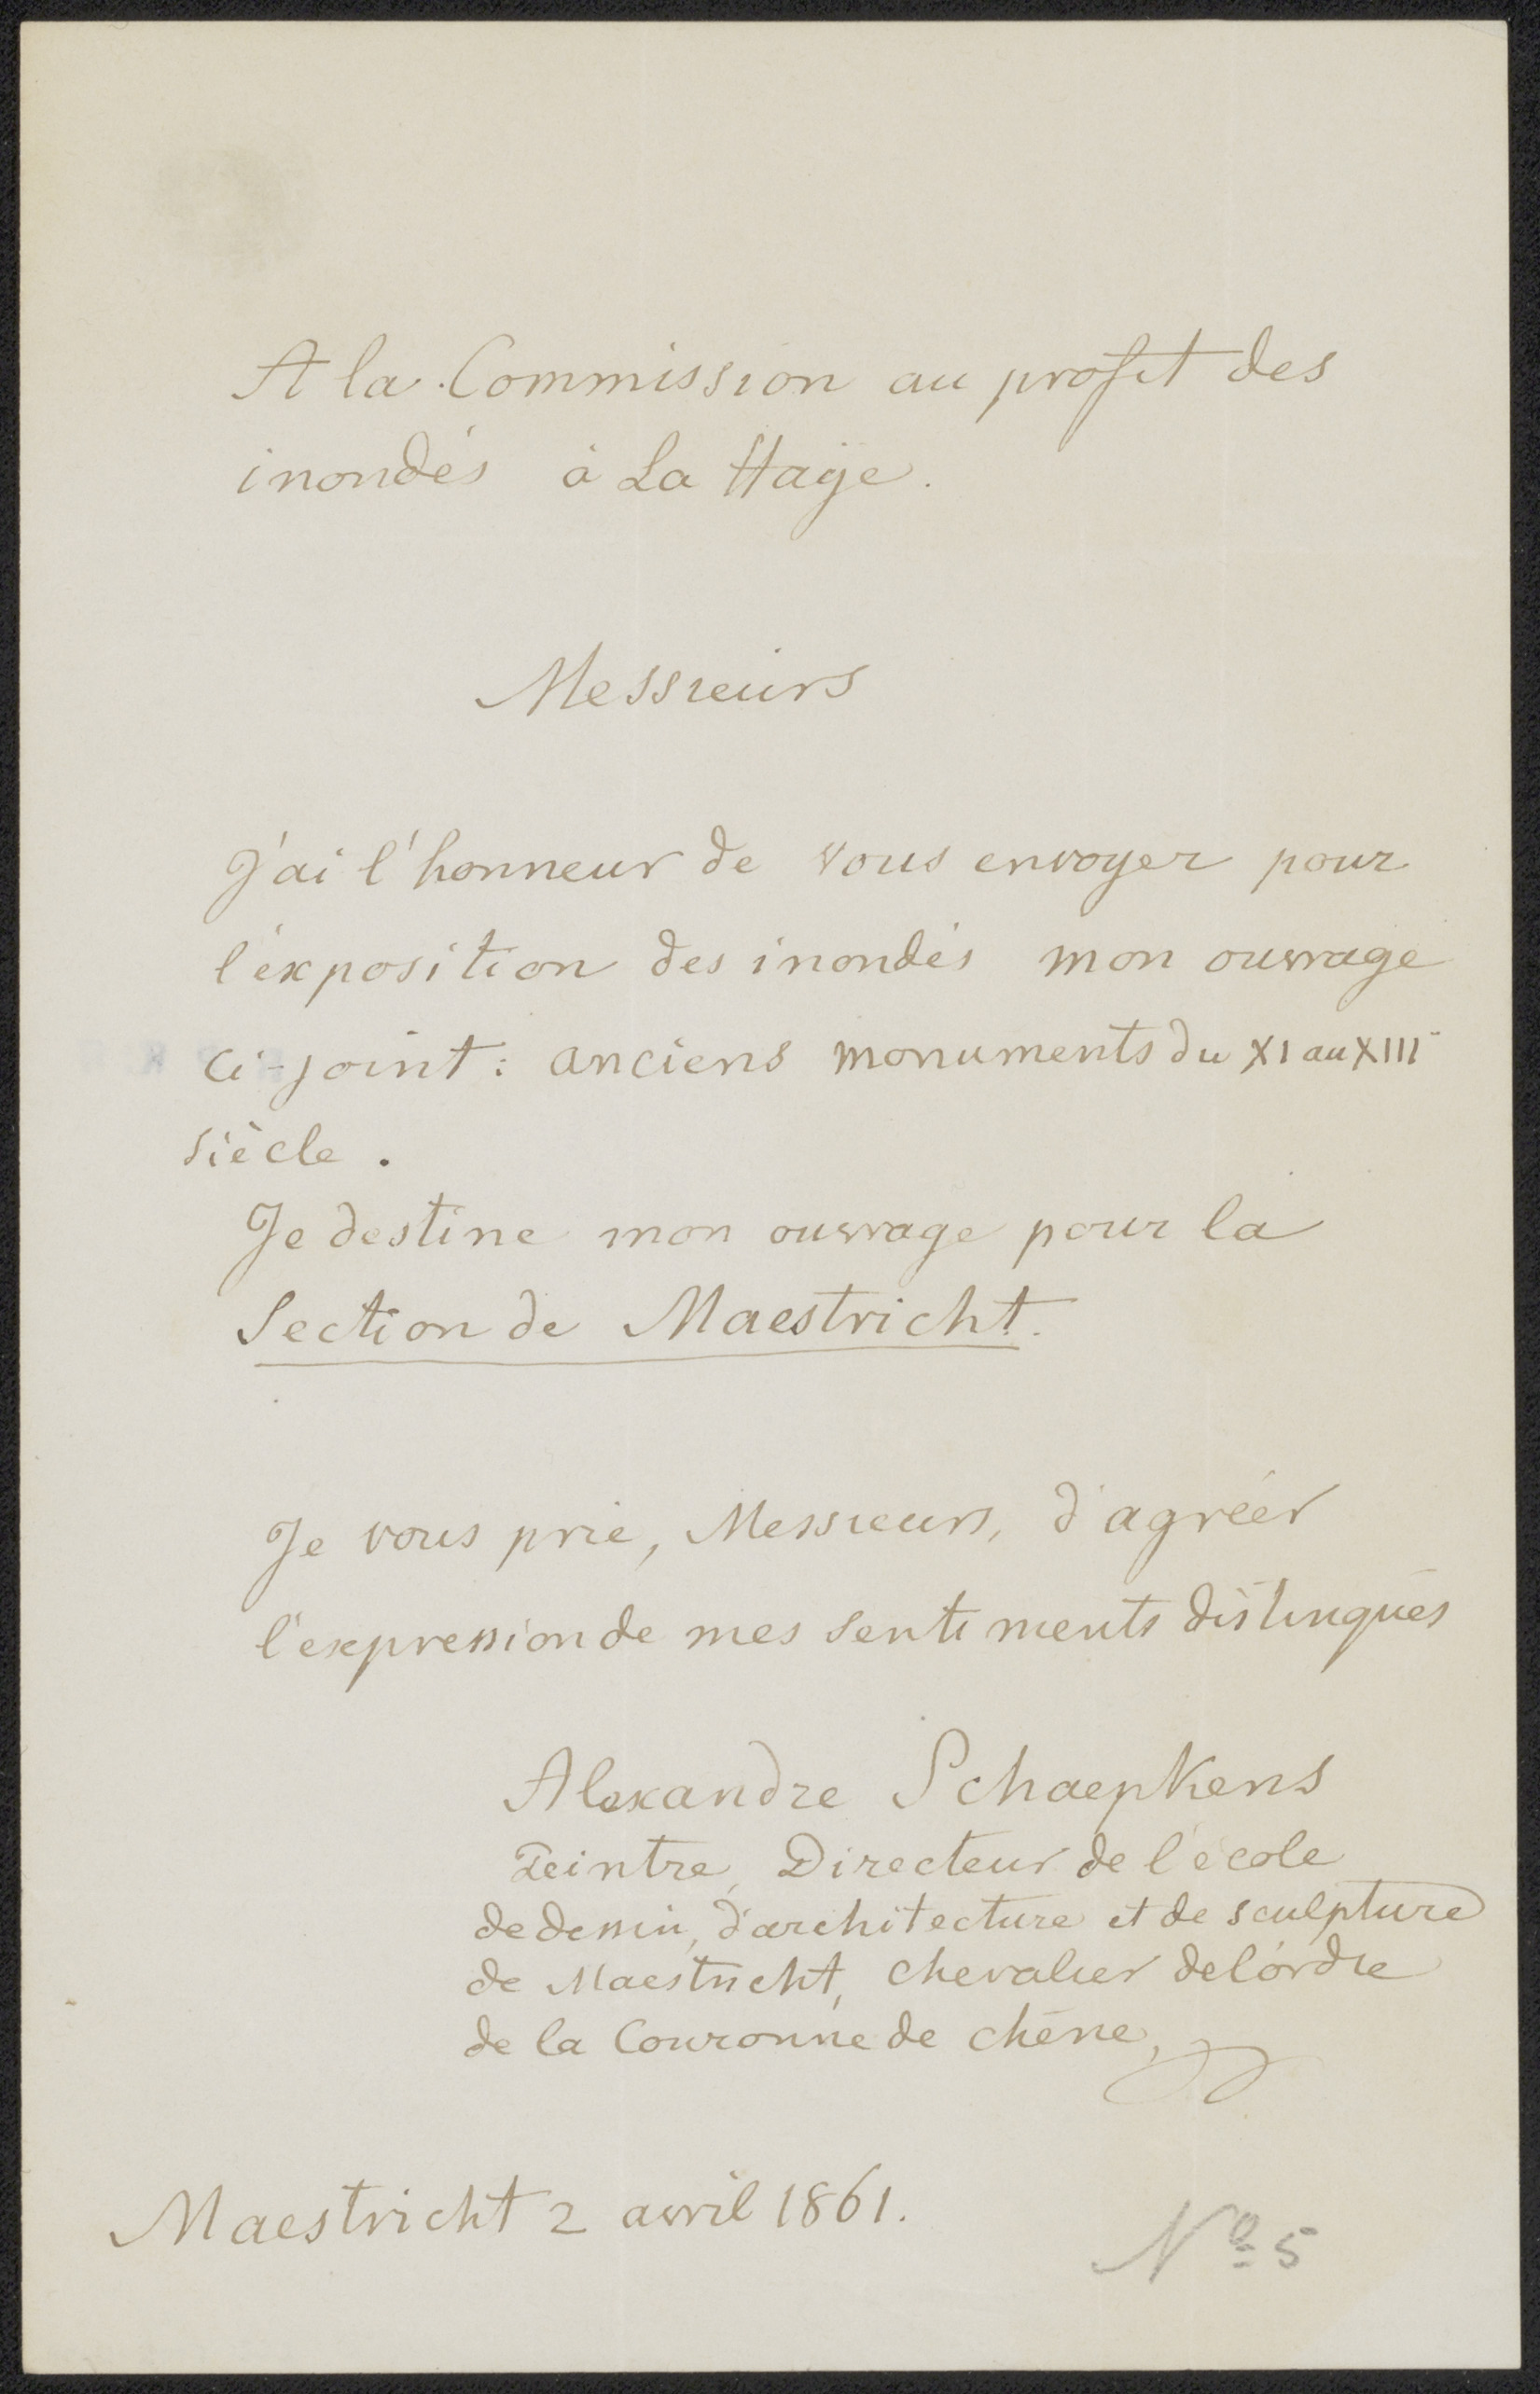 A la Commission au profit des
inondés à La Haÿe.
Messieurs
J'ai l'honneur de vous envoyer pour
l'exposition des inondés mon ouvrage
ci-joint: anciens monuments du XI au XIII
siècle.
Je destine mon ouvrage pour la
Section de Maestricht.
Je vous prie, Messieurs, d'agréér
l'expression de mes sentiments distingués
Alexandre Schaepkens
Peintre, Directeur de l'école
de dessin, d'architecture et de sculpture
de Maestricht, chevalier de l'ordre
de la Couronne de chêne,
Maestricht 2 avril 1861.
Nº 5